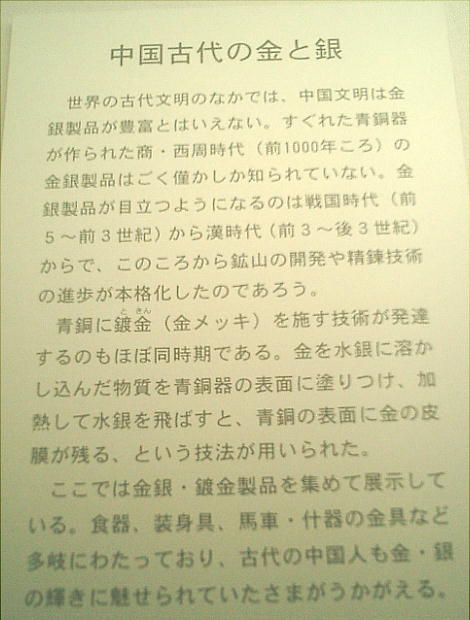 中国古代の金と銀
世界の古代文明のなかでは、中国文明は金
銀製品が豊富とはいえない。すぐれた青銅器
が作られた商・西周時代（前1000年ころ）の
金銀製品はごく僅かしか知られていない。金
銀製品が目立つようになるのは戦国時代（前
５～前３世紀）から漢時代（前３～後３世紀）
からで、このころから鉱山の開発や精錬技術
の進歩が本格化したのであろう。
青銅に鍍金（金メッキ）を施す技術が発達
するのもほぼ同時期である。金を水銀に溶か
し込んだ物質を青銅器の表面に塗りつけ、加
熱して水銀を飛ばすと、青銅の表面に金の皮
膜が残る、という技法が用いられた。
ここでは金銀・鍍金製品を集めて展示して
いる。食器、装身具、馬車・什器の金具など
多岐にわたっており、古代の中国人も金・銀
の輝きに魅せられていたさまがうかがえる。